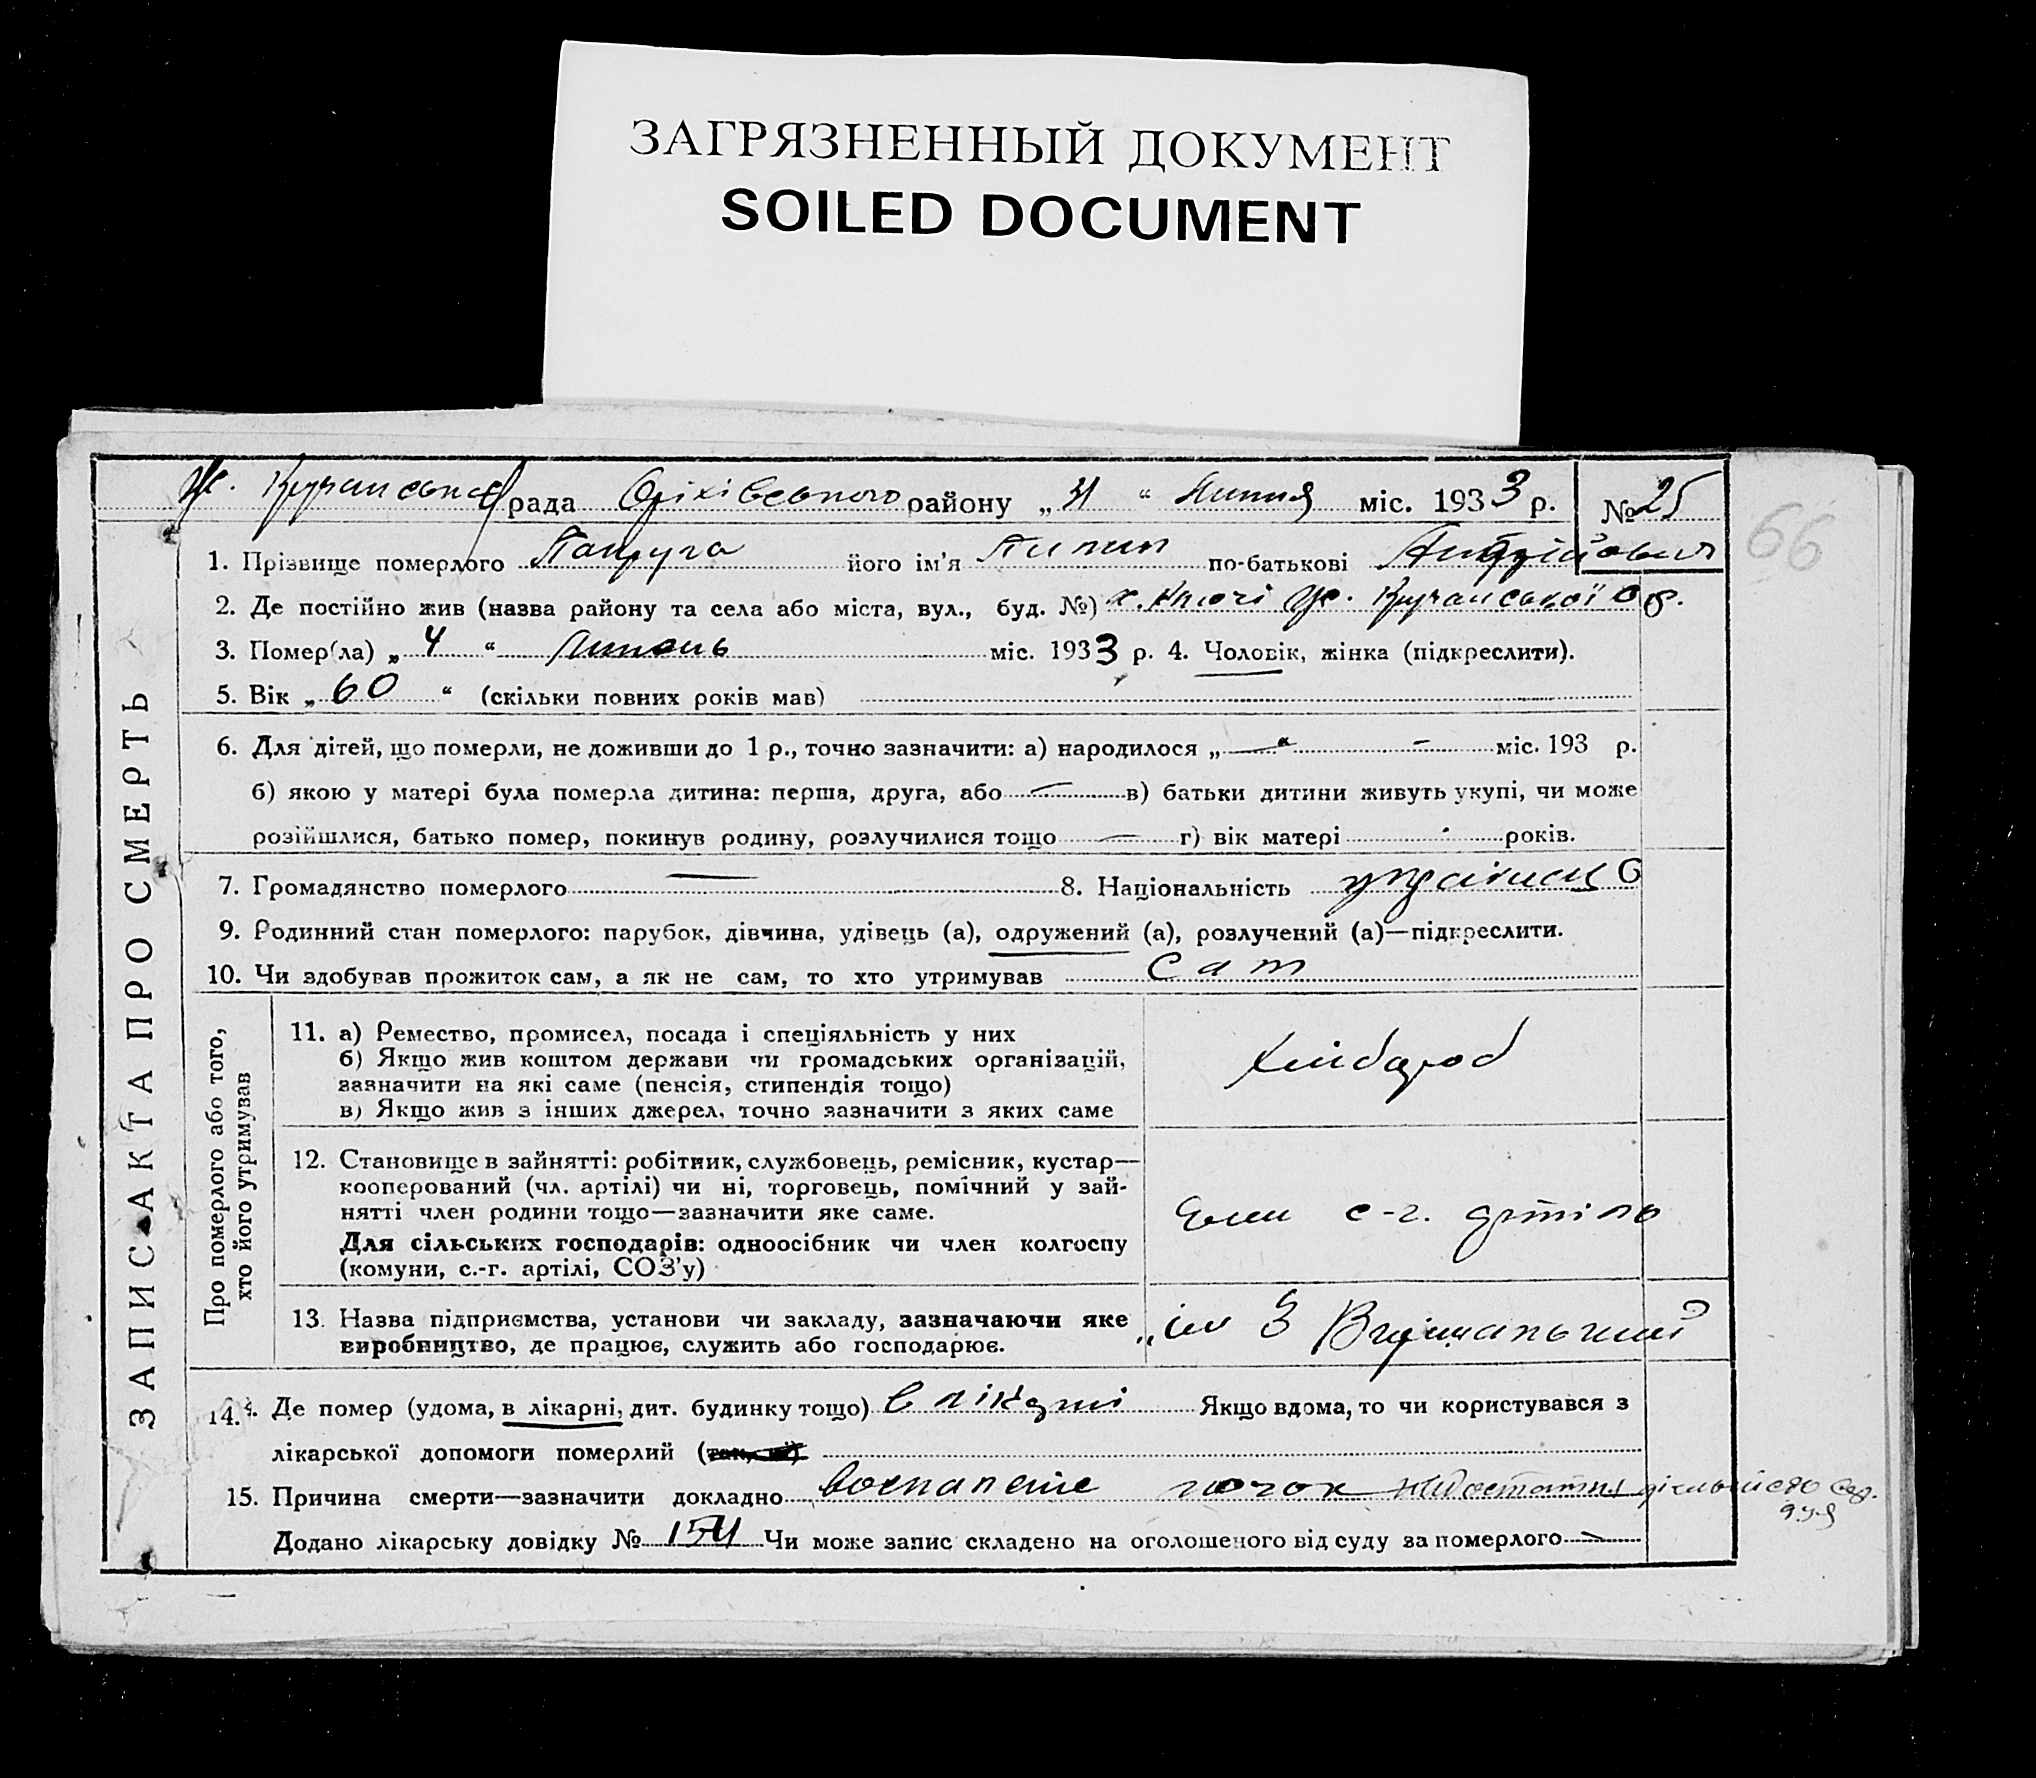 ЗАГРЯЗНЕННЫЙ ДОКУМЕНТ
SOILED DOCUMENT
рада Оріхівського району „ “ Липня міс. 1933 р. № 25
66
1. Прізвище померлого його ім'я Пилип по-батькові Андрійович
2. Де постійно жив (назва району та села або міста, вул., буд. №) х.
3. Помер(ла) „ 4 “ Липень міс. 1933 р. 4. Чоловік, жінка (підкреслити).
5. Вік „ 60 “ (скільки повних років мав)
6. Для дітей, що померли, не доживши до 1 р., точно зазначити: а) народилося „ — “ – міс. 193 р.
б) якою у матері була померла дитина: перша, друга, або — в) батьки дитини живуть укупі, чи може
розійшлися, батько помер, покинув родину, розлучилися тощо — г) вік матері років.
7. Громадянство померлого — 8. Національність українець
9. Родинний стан померлого: парубок, дівчина, удівець (а), одружений (а), розлучений (а)—підкреслити.
10. Чи здобував прожиток сам, а як не сам, то хто утримував сам
ЗАПИС АКТА ПРО СМЕРТЬ
Про померлого або того,
хто його утримував
11. а) Ремество, промисел, посада і спеціяльність у них
б) Якщо жив коштом держави чи громадських організацій,
зазначити на які саме (пенсія, стипендія тощо)
в) Якщо жив з інших джерел, точно зазначити з яких саме
хлібороб
12. Становище в зайнятті: робітник, службовець, ремісник, кустар—
кооперований (чл. артілі) чи ні, торговець, помічний у зай-
нятті член родини тощо—зазначити яке саме.
Для сільських господарів: одноосібник чи член колгоспу
(комуни, с.-г. артілі, СОЗ'у)
член с-г. артіль
13. Назва підприємства, установи чи закладу, зазначаючи яке
виробництво, де працює, служить або господарює.
„ім 3
14. Де помер (удома, в лікарні, дит. будинку тощо) в лікарні Якщо вдома, то чи користувався з
лікарської допомоги померлий (так, ні)
15. Причина смерти—зазначити докладно воспаление почок
Додано лікарську довідку № 154 Чи може запис складено на оголошеного від суду за померлого —